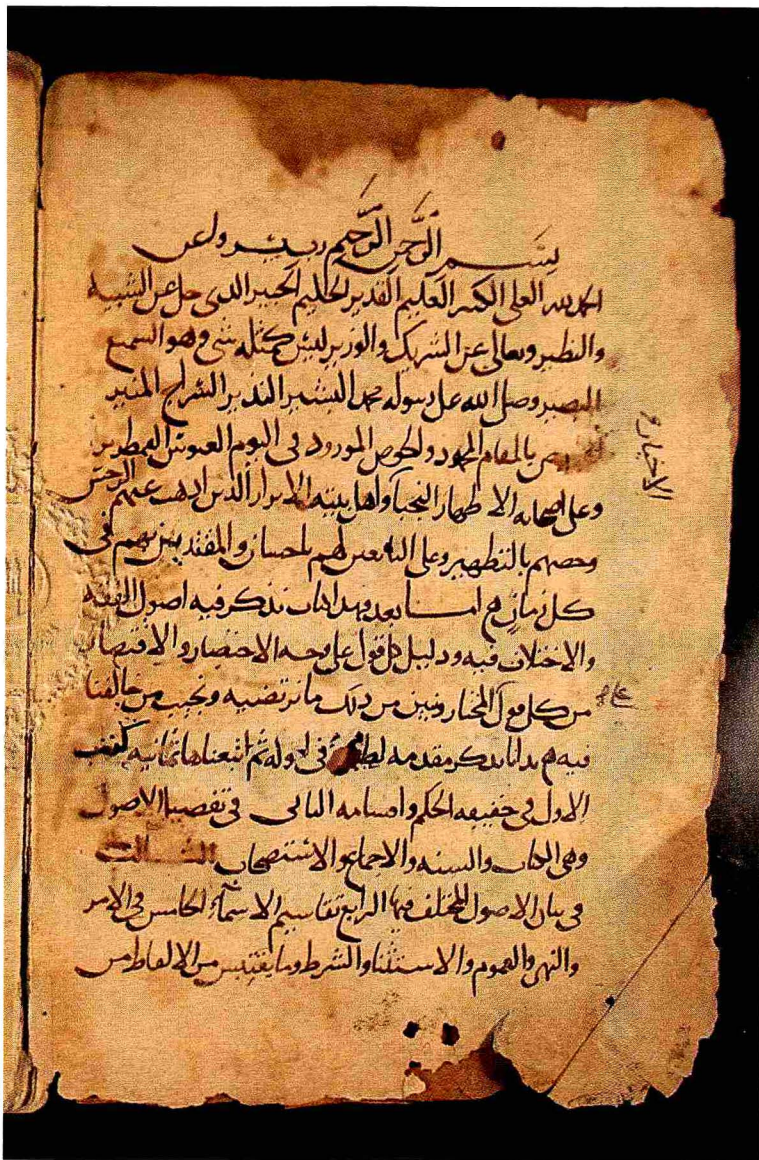 بسم الله الرحمن الرحيم رب يسر واعن
الحمد لله العلي الكبير العليم القدير الحكيم الخبير الذي جل عن الشبيه
والنظير وتعالى عن الشريك والوزير ليس كمثله شي وهو السميع
البصير وصلى الله على رسوله محمد البشير النذير السراج المنير
بالمقام المحمود والحوض المورود في اليوم العبوس القمطرير
وعلى اصحابه الاطهار النجبآ واهل بيته الابرار الذين اذهب عنهم الرجس
وخصهم بالتطهير وعلى التابعين لهم باحسان والمقتدين بهم في
كل زمان امـا بعد فهذا كتاب نذكر فيه اصول الفقه
والاختلاف فيه ودليل كل قول على وجه الاختصار والاقتصار
من كل قول المختار ونبين من ذلك ما نرتضيه ونجيب من خالفنا
فيه بدانا بذكر مقدمه في اوله ثم اتبعناها ثمانيه
الاول في حقيقه الحكم واقسامه الثاني في تفصيل الاصول
وهي الكتاب والسنه والاجماع والاستصحاب الثـالث
في بيان الاصول المختلف فيها الرابع تقاسيم الاسمآء الخامس في الامر
والنهي والعموم والاستثنا والشرط وما يقتبس من الالفاظ من
الاخيار و
على